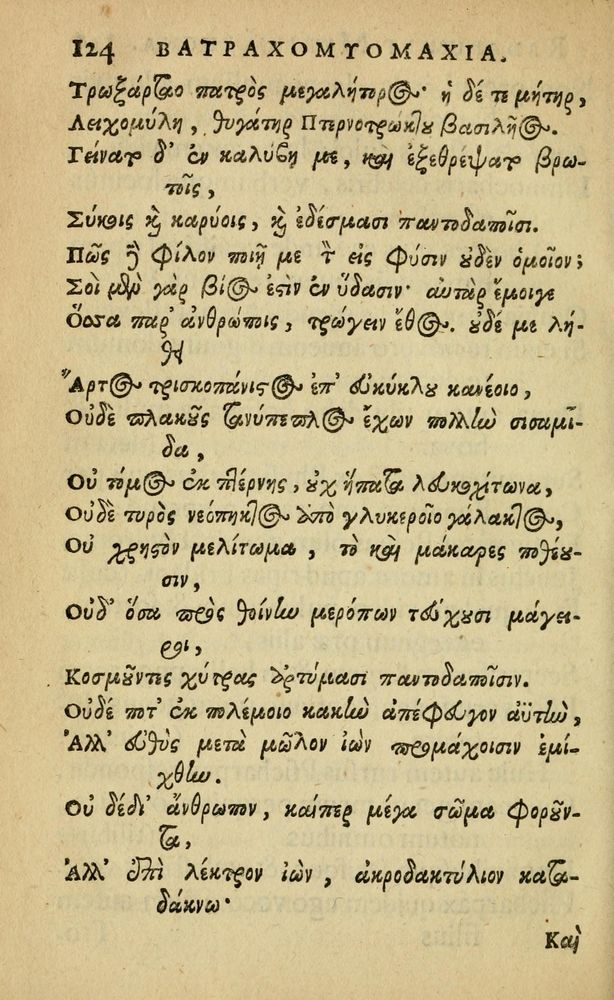 124 ΒΑΤΡΑΧΟΜΥΟΜΑΧΙΑ.
Τρωξάρταο πατρὸς μεγαλήτορος· ἡ δέ τε μήτηρ,
Λειχομύλη, θυγάτηρ Πτερνοτρώκτου βασιλῆος.
Γείνατο δ' ἐν καλύβῃ με, καὶ ἐξεθρέψατο βρω-
τοῖς,
Σύκοις καὶ καρύοις, καὶ ἐδέσμασι παντοδαποῖσι.
Πῶς δὲ φίλον ποιῇ με τὸν εἰς φύσιν οὐδὲν ὁμοῖον;
Σοὶ μὲν γὰρ βίος ἐστὶν ἐν ὕδασιν· αὐτὰρ ἔμοιγε
Ὅσσα παρ' ἀνθρώποις, τρώγειν ἔθος. οὐδέ με λή-
θει
Ἄρτος τρισκοπάνιστος ἐπ' εὐκύκλου κανέοιο,
Οὐδὲ πλακοῦς τανύπεπλος ἔχων πολλὴν σισαμῖ-
δα,
Οὐ τόμος ἐκ πτέρνης, οὐχ ἥπατα λευκοχίτωνα,
Οὐδὲ τυρὸς νεόπηκτος ἀπὸ γλυκεροῖο γάλακτος,
Οὐ χρηστὸν μελίτωμα, τὸ καὶ μάκαρες ποθέου-
σιν,
Οὐδ' ὅσα πρὸς θοίνην μερόπων τεύχουσι μάγει-
ροι,
Κοσμοῦντες χύτρας ἀρτύμασι παντοδαποῖσιν.
Οὐδέ ποτ' ἐκ πολέμοιο κακὴν ἀπέφευγον ἀϋτὴν,
Ἀλλ' εὐθὺς μετὰ μῶλον ἰὼν προμάχοισιν ἐμί-
χθην.
Οὐ δέδι' ἄνθρωπον, καίπερ μέγα σῶμα φοροῦν-
τα,
Ἀλλ' ἐπὶ λέκτρον ἰὼν, ἀκροδακτύλιον κατα-
δάκνω·
Καὶ